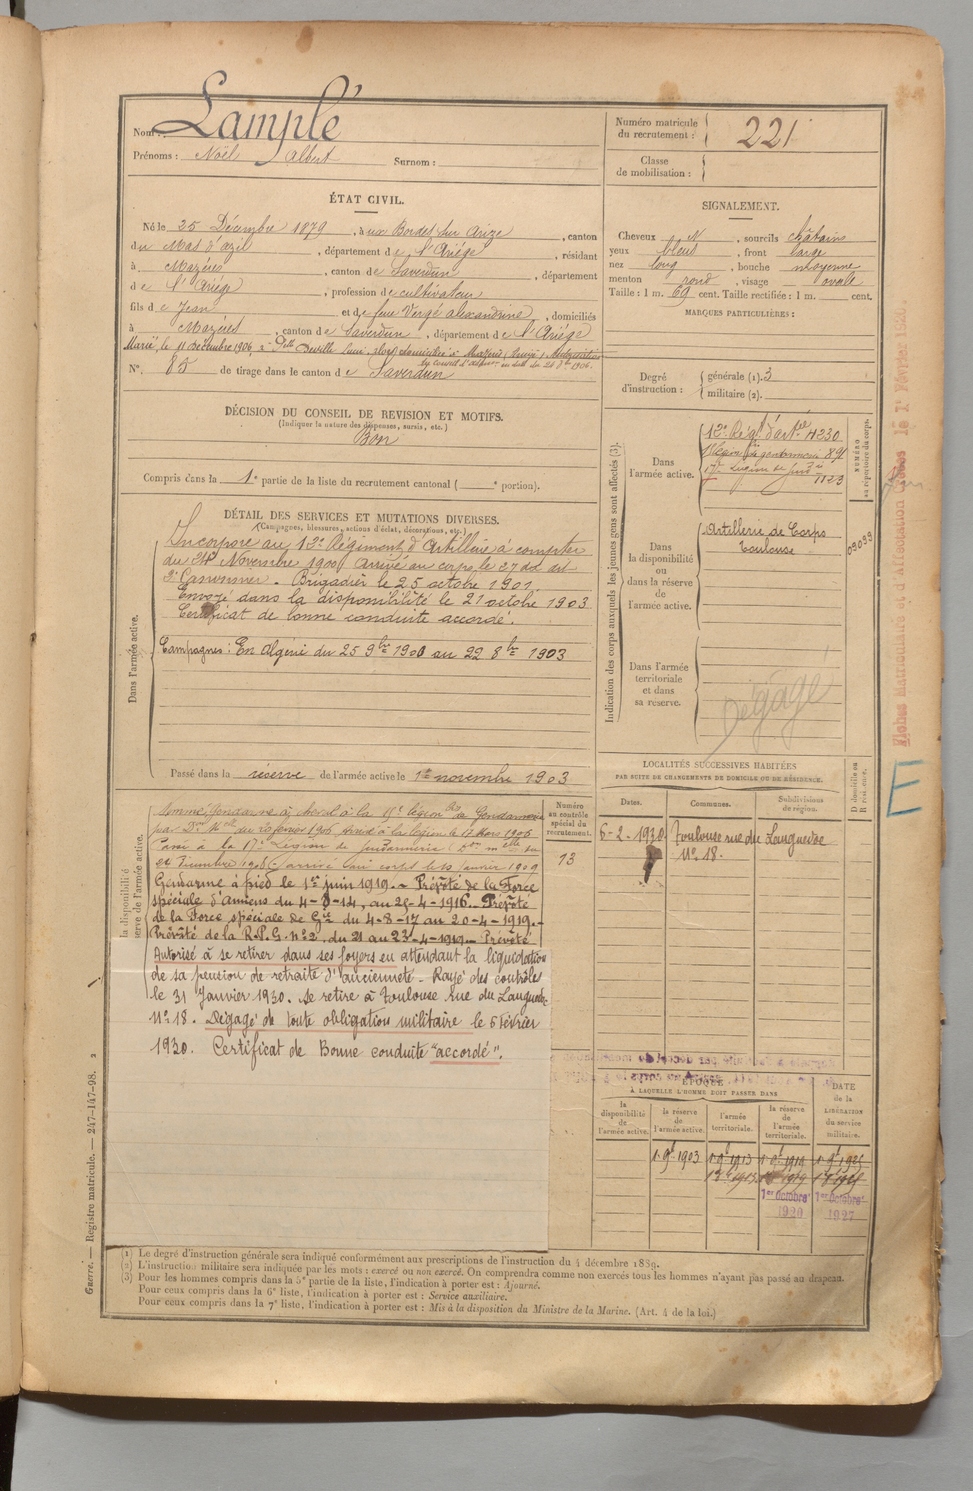 Nom : Lamplé
Prénoms : Noël Albert Surnom :
Numéro matricule du recrutement : 221
Classe de mobilisation :
ÉTAT CIVIL.
Né le 25 Décembre 1879, à aux Bordes sur Arize, canton
du Mas d'azil, département de l'Ariége, résidant
à Mazéres, canton de Saverdun, département
de l'Ariége, profession de cultivateur
fils de Jean et de feue Vergé alexandrine, domiciliés
à Mazéres, canton de Saverdun, département de l'Ariége
Marié le 11 décembre 1906 à Delle Deville
N°. 85 de tirage dans le canton de Saverdun
SIGNALEMENT.
Cheveux N, sourcils châtains
yeux bleus, front large
nez long, bouche moyenne
menton rond, visage ovale
Taille : 1 m. 69 cent. Taille rectifiée : 1 m. cent.
MARQUES PARTICULIÈRES :
Degré d'instruction : générale (1). 3
militaire (2).
DÉCISION DU CONSEIL DE REVISION ET MOTIFS.
(Indiquer la nature des dispenses, sursis, etc.)
Bon
Compris dans la 1e partie de la liste du recrutement cantonal ( portion).
DÉTAIL DES SERVICES ET MUTATIONS DIVERSES.
(Campagnes, blessures, actions d'éclat, décorations, etc.)
Dans l'armée active.
Incorporé au 12e Régiment d'Artillerie à compter
du 24 Novembre 1900 Arrivé au corps le 27 du dit
2e Canonnier - Brigadier le 25 octobre 1901
Envoyé dans la disponibilité le 21 octobre 1903
Certificat de bonne conduite accordé.
Campagnes : En Algérie du 25 9bre 1900 au 22 8bre 1903
Passé dans la réserve de l'armée active le 1er novembre 1903
Indication des corps auxquels les jeunes gens sont affectés (3).
NUMÉRO au répertoire du corps.
Dans l'armée active.
12e Régt d'artie 4230
de gendarmerie 891
17e Légion de gendie 1123
Dans la disponibilité ou dans la réserve de l'armée active.
Artillerie de Corps
Toulouse
09099
Dans l'armée territoriale et dans sa réserve.
Dégagé
Fiches Matriculaire et d'Affectation créées le 1er Février 1920
E
LOCALITÉS SUCCESSIVES HABITÉES
PAR SUITE DE CHANGEMENTS DE DOMICILE OU DE RÉSIDENCE.
Dates. Communes. Subdivisions de région. D domicile ou R résidence.
6-2-1930 Toulouse rue du Languedoc
N° 18.
Numéro au contrôle spécial du recrutement.
13
la disponibilité
réserve de l'armée active.
Nommé Gendarme à cheval à la légion de Gendarmerie
Passé à la 17e Légion de Gendarmerie
arrivé au corps le 10 Janvier 1909
Gendarme à pied le 1er juin 1919. - Prévôté de la Force
spéciale d'Amiens du 4-8-14, au 25-4-1916. Prévôté
de la Force spéciale de Gie du 4-8-17 au 20-4-1919.-
Prévôté de la R.P.G. n°2, du 21 au 23-4-1919.- Prévôté
Autorisé à se retirer dans ses foyers en attendant la liquidation
de sa pension de retraite d'ancienneté - Rayé des contrôles
le 31 Janvier 1930. Se retire à Toulouse Rue du Languedoc
N° 18. Dégagé de toute obligation militaire le 6 février
1930. Certificat de Bonne conduite "accordé".
ÉPOQUE
À LAQUELLE L'HOMME DOIT PASSER DANS
la disponibilité de l'armée active. la réserve de l'armée active. l'armée territoriale. la réserve de l'armée territoriale. DATE de la LIBÉRATION du service militaire.
1-9bre 1903 1-9bre 1913 1-9bre 1919 1-9bre 1925
1er Octobre 1er Octobre
1920 1927
(1) Le degré d'instruction générale sera indiqué conformément aux prescriptions de l'instruction du 4 décembre 1889.
(2) L'instruction militaire sera indiquée par les mots : exercé ou non exercé. On comprendra comme non exercés tous les hommes n'ayant pas passé au drapeau.
(3) Pour les hommes compris dans la 5e partie de la liste, l'indication à porter est : Ajourné.
Pour ceux compris dans la 6e liste, l'indication à porter est : Service auxiliaire.
Pour ceux compris dans la 7e liste, l'indication à porter est : Mis à la disposition du Ministre de la Marine. (Art. 4 de la loi.)
Guerre. — Registre matricule. — 247-147-98. 2